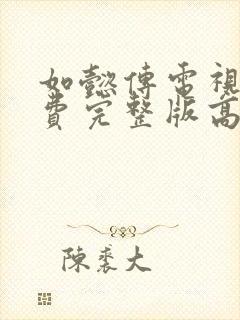 如懿傳電視
費完整版高
陳裘大